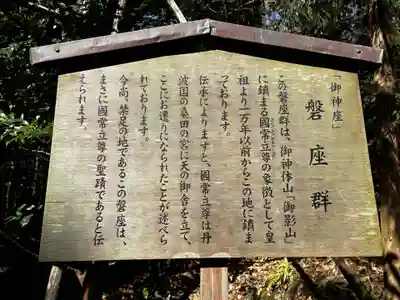 「御神座」
磐座群
この磐座群は、御神体山「御影山」
に鎮まる國常立尊の象徴として皇
祖より一万年以前からこの地に鎮ま
っております。
伝承によりますと、國常立尊は丹
波国の桑田の宮にその御舎を立て、
ここにお遷りになられたことが述べら
れております。
今尚、禁足の地であるこの磐座は、
まさに國常立尊の聖蹟であると伝
えられます。